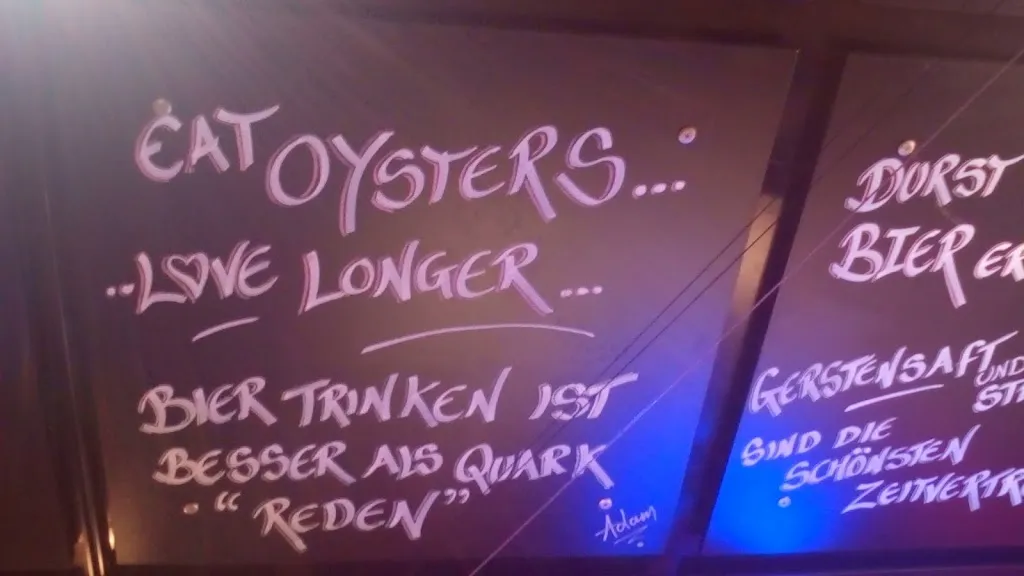 EAT OYSTERS...
..LOVE LONGER...
BIER TRINKEN IST
BESSER ALS QUARK
"REDEN"
Adam
DURST
BIER
GERSTENSAFT
UND
SIND DIE
SCHÖNSTEN